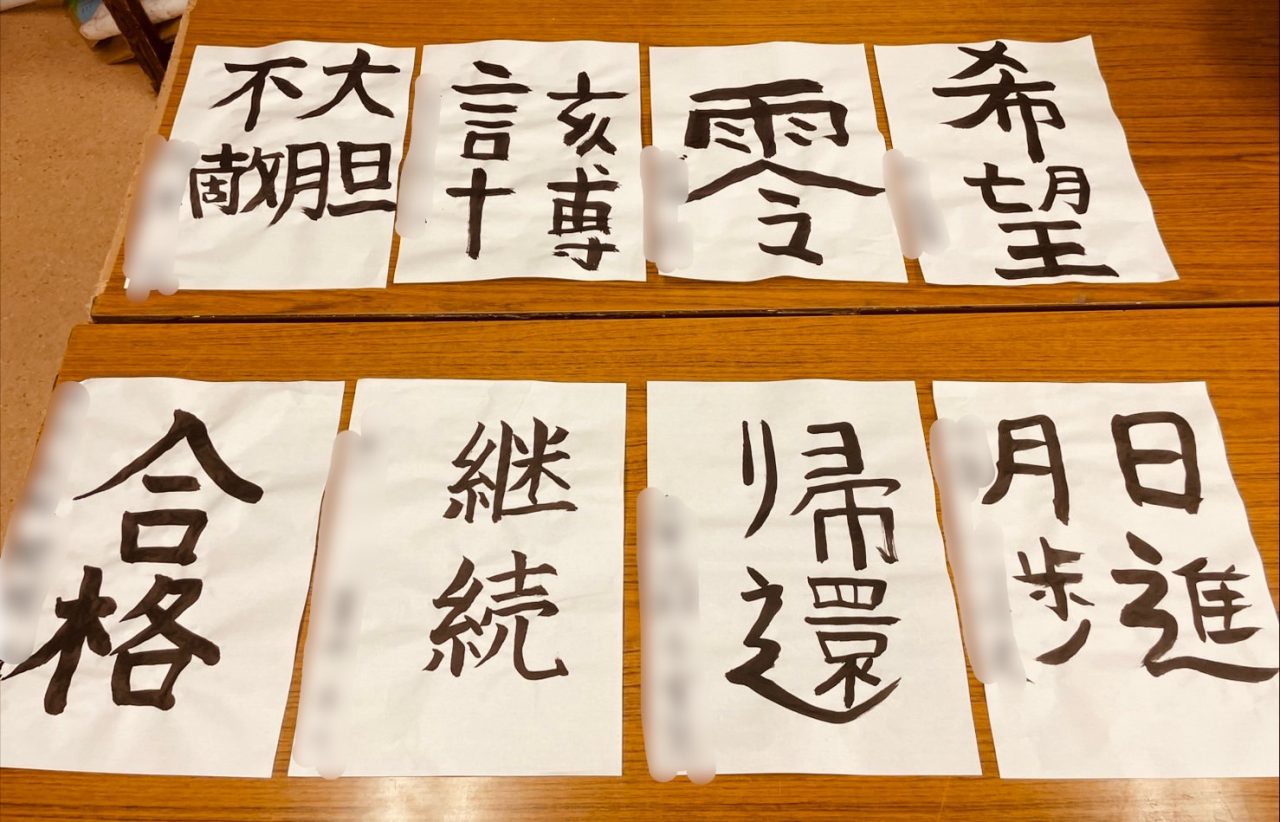 大胆
不敵
該博
零
希望
合格
継続
帰還
日進
月歩